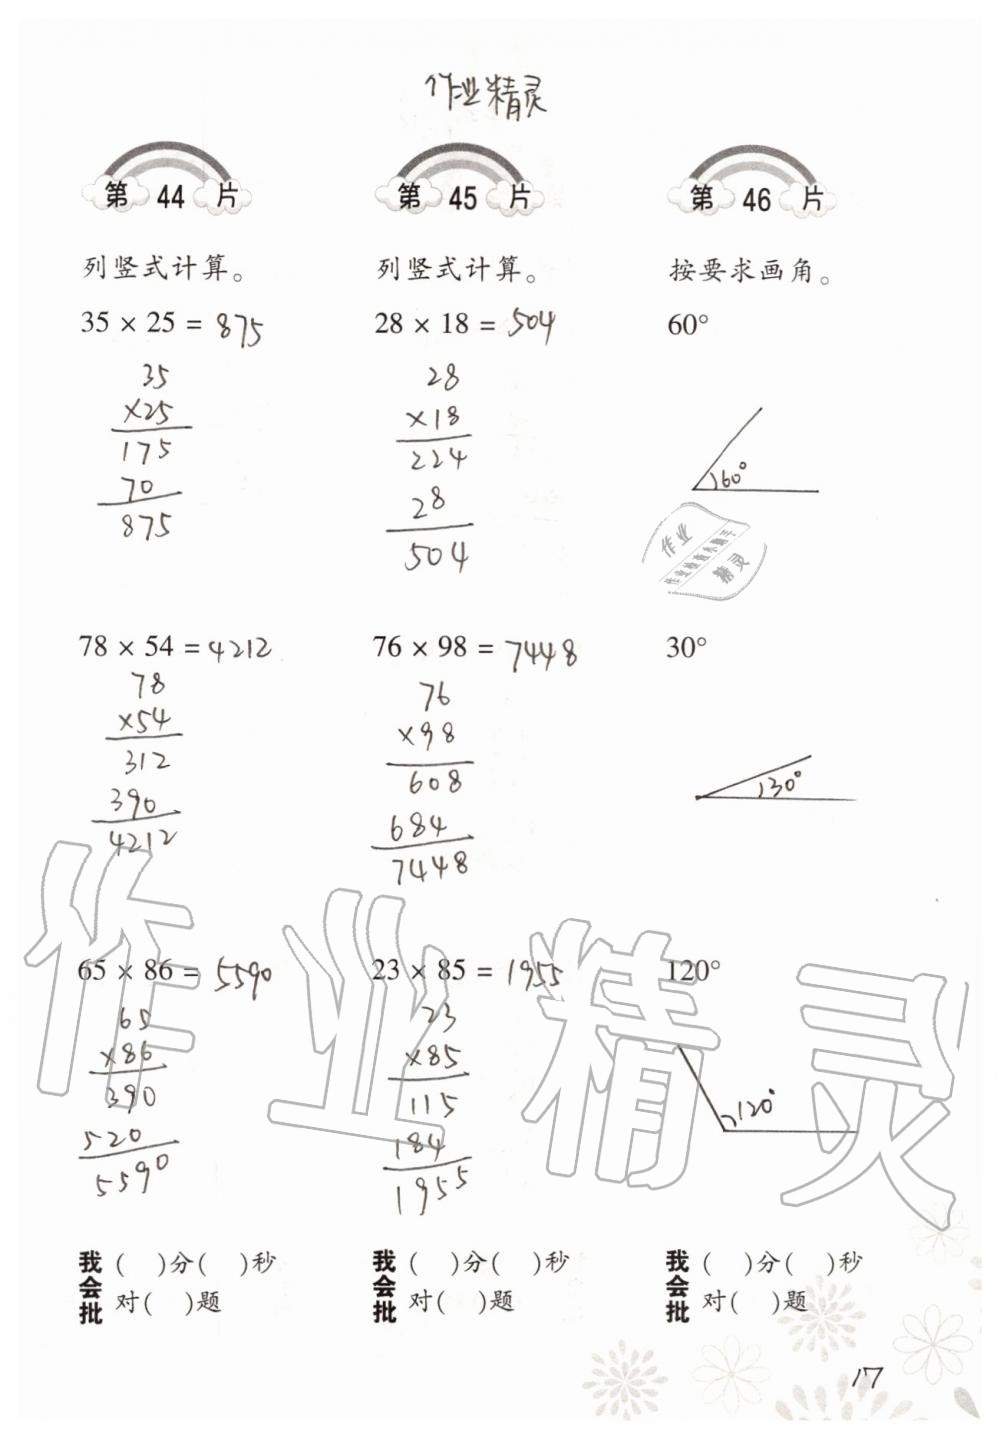 作业精灵
第 44 片
列竖式计算。
35 × 25 = 875
35
×25
175
70
875
78 × 54 = 4212
78
×54
312
390
4212
65 × 86 = 5590
65
×86
390
520
5590
我会批
( )分( )秒
对( )题
第 45 片
列竖式计算。
28 × 18 = 504
28
×18
224
28
504
76 × 98 = 7448
76
×98
608
684
7448
23 × 85 = 1955
23
×85
115
184
1955
我会批
( )分( )秒
对( )题
第 46 片
按要求画角。
60°
60°
作业
精灵
30°
30°
120°
120°
我会批
( )分( )秒
对( )题
作业精灵
17